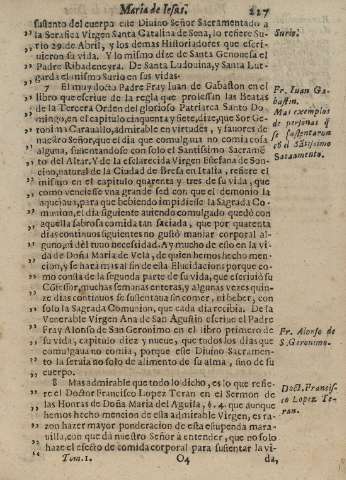 Maria de Iesus. 227
sustento del cuerpo este Diuino Señor Sacramentado a
la Serafica Virgen Santa Catalina de Sena, lo refiere Su-
rio 29. de Abril, y los demas Historiadores que escri-
uieron su vida. Y lo mismo dize de Santa Genouefa el
Padre Ribadeneyra. De Santa Ludouina, y Santa Lut-
garda el mismo Surio en sus vidas.
Surio.
7 El muy docto Padre Fray Iuan de Gabaston en el
libro que escriue de la regla que professan las Beatas
de la Tercera Orden del glorioso Patriarca Santo Do-
mingo, en el capitulo cinquenta y siete, dize, que Sor Ge-
ronima Carauallo, admirable en virtudes, y fauores de
nuestro Señor, que el dia que comulgaua no comia cosa
alguna, sustentandose con solo el Santissimo Sacramen-
to del Altar. Y de la esclarecida Virgen Estefana de Son-
cino, natural de la Ciudad de Bresa en Italia, refiere el
mismo en el capitulo quarenta y tres de su vida, que
como veniesse vna grande sed con que el demonio la
aquexaua, para que bebiendo impidiesse la Sagrada Co-
munion, el dia siguiente auiendo comulgado quedò con
aquella sabrosa comida tan saciada, que por quarenta
dias continuos siguientes no gustò manjar corporal al-
guno, ni del tuuo necessidad. Ay mucho de esto en la vi-
da de Doña Maria de Vela, de quien hemos hecho men-
cion, y se harà mas al fin de esta Elucidacion; porque co-
mo consta de la segunda parte de su vida, que escriuiò su
Cõfessor, muchas semanas enteras, y algunas vezes quin-
ze dias continuos se sustentaua sin comer, ni beber, con
solo la Sagrada Comunion, que cada dia recibia. De la
Venerable Virgen Ana de San Agustin escriue el Padre
Fray Alonso de San Geronimo en el libro primero de
su vida, capitulo diez y nueue, que todos los dias que
comulgaua no comia, porque este Diuino Sacramen-
to la seruia no solo de alimento de su alma, sino de su
cuerpo.
Fr. Iuan Ga-
bastin.
Mas exemplos
de personas q̃
se sustentaron
cõ el Sãtissimo
Sacramento.
Fr. Alonso de
S. Geronimo.
8 Mas admirable que todo lo dicho, es lo que refie-
re el Doctor Francisco Lopez Teran en el Sermon de
las Honras de Doña Maria del Aguila, §. 4. que aunque
hemos hecho mencion de esta admirable Virgen, es ra-
zon hazer mayor ponderacion de esta estupenda mara-
uilla, con que dà nuestro Señor a entender, que no solo
haze el efecto de comida corporal para sustentar la vi-
Doct. Francis-
co Lopez Te-
ran.
Tom. 1. O4 da,